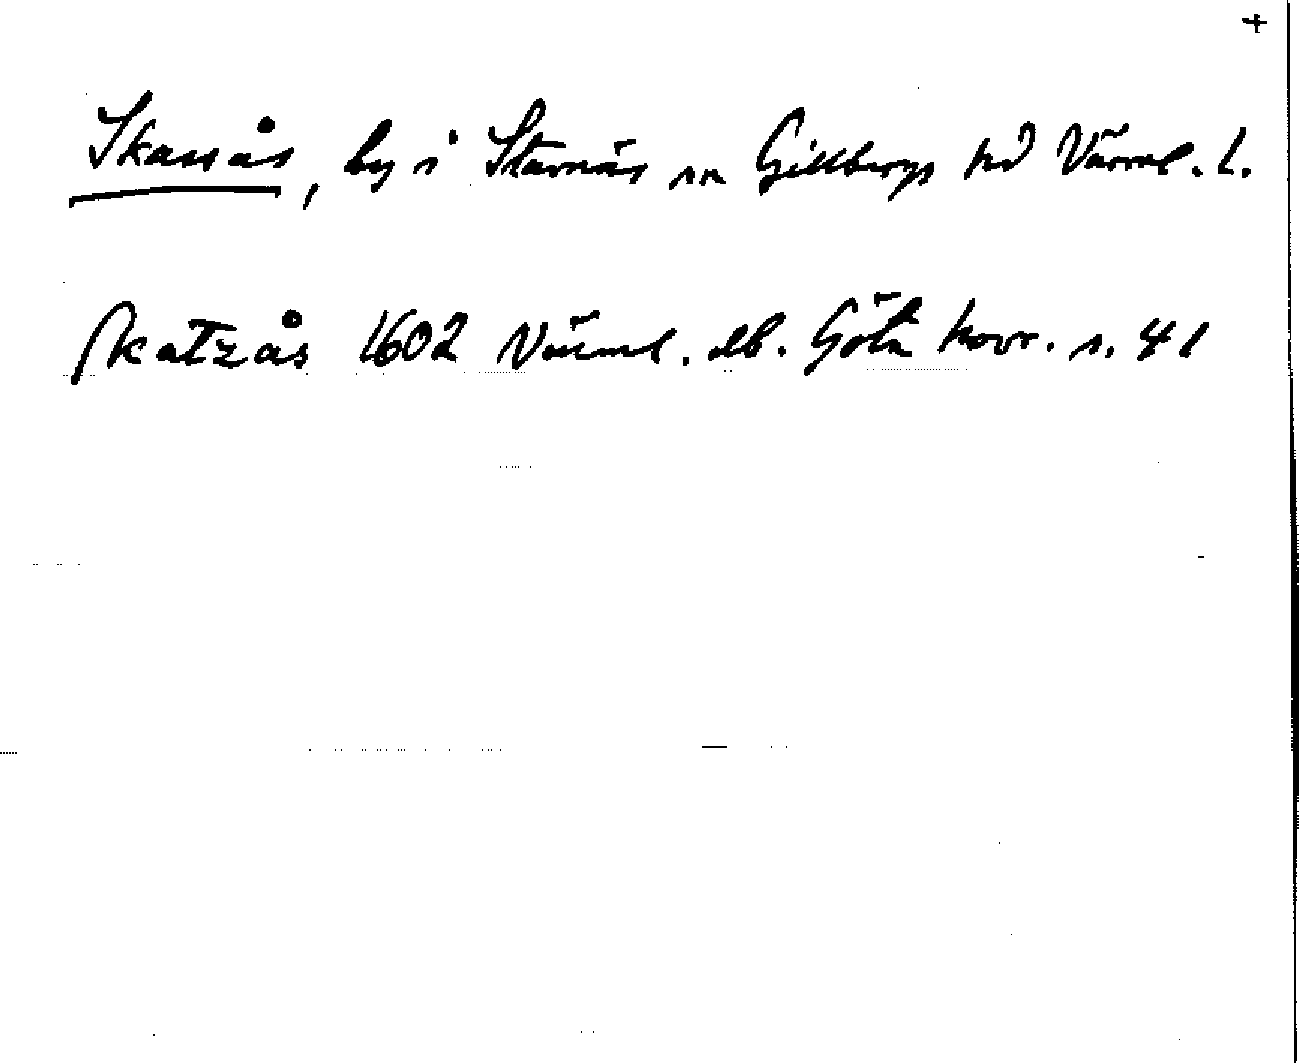 +
Skassås, by i Stavnäs sn Gillbergs hd Värml. l.
skatzås 1602 Värml. db. Göta hovr. s. 41